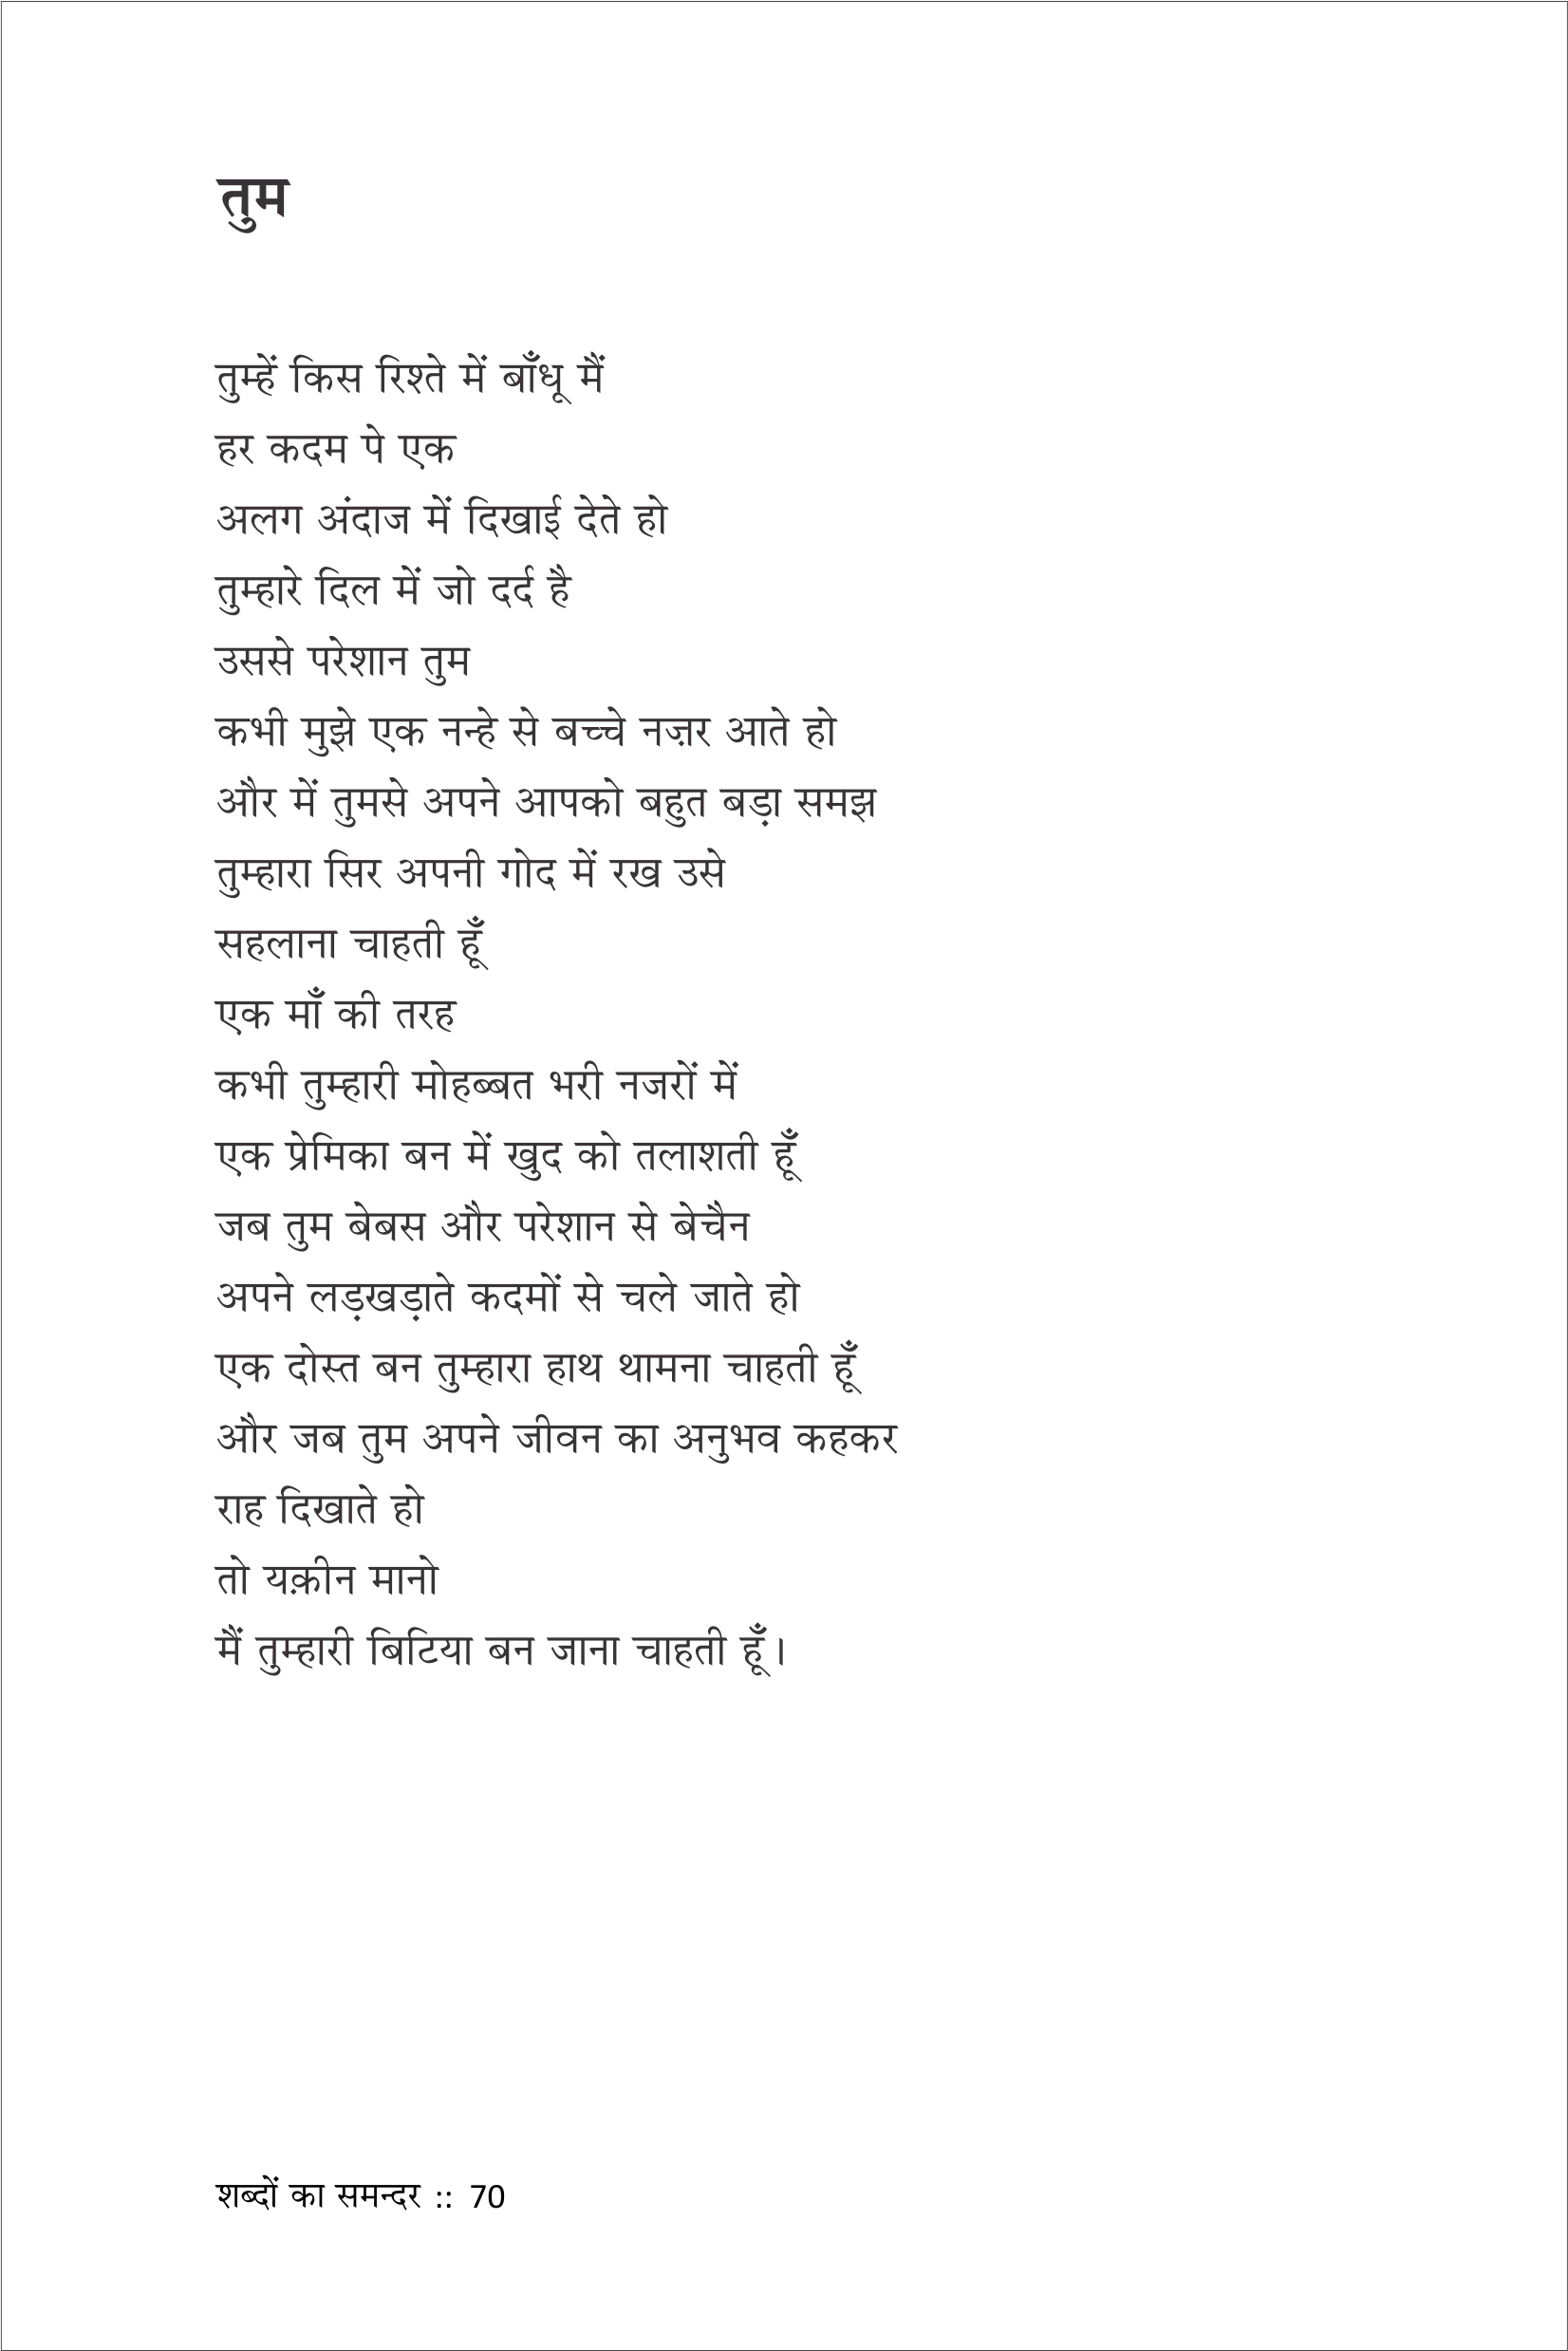 तुम
तुम्हें किस रिश्ते में बाँधू मैं
हर कदम पे एक
अलग अंदाज में दिखाई देते हो
तुम्हारे दिल में जो दर्द है
उससे परेशान तुम
कभी मुझे एक नन्हे से बच्चे नज़र आते हो
और में तुमसे अपने आपको बहुत बड़ा समझ
तुम्हारा सिर अपनी गोद में रख उसे
सहलाना चाहती हूँ
एक माँ की तरह
कभी तुम्हारी मोहब्बत भरी नजरों में
एक प्रेमिका बन में खुद को तलाशती हूँ
जब तुम बेबस और परेशान से बेचैन
अपने लड़खड़ाते कदमों से चले जाते हो
एक दोस्त बन तुम्हारा हाथ थामना चाहती हूँ
और जब तुम अपने जीवन का अनुभव कहकर
राह दिखाते हो
तो यक़ीन मानो
मैं तुम्हारी बिटिया बन जाना चाहती हूँ।
शब्दों का समन्दर :: 70